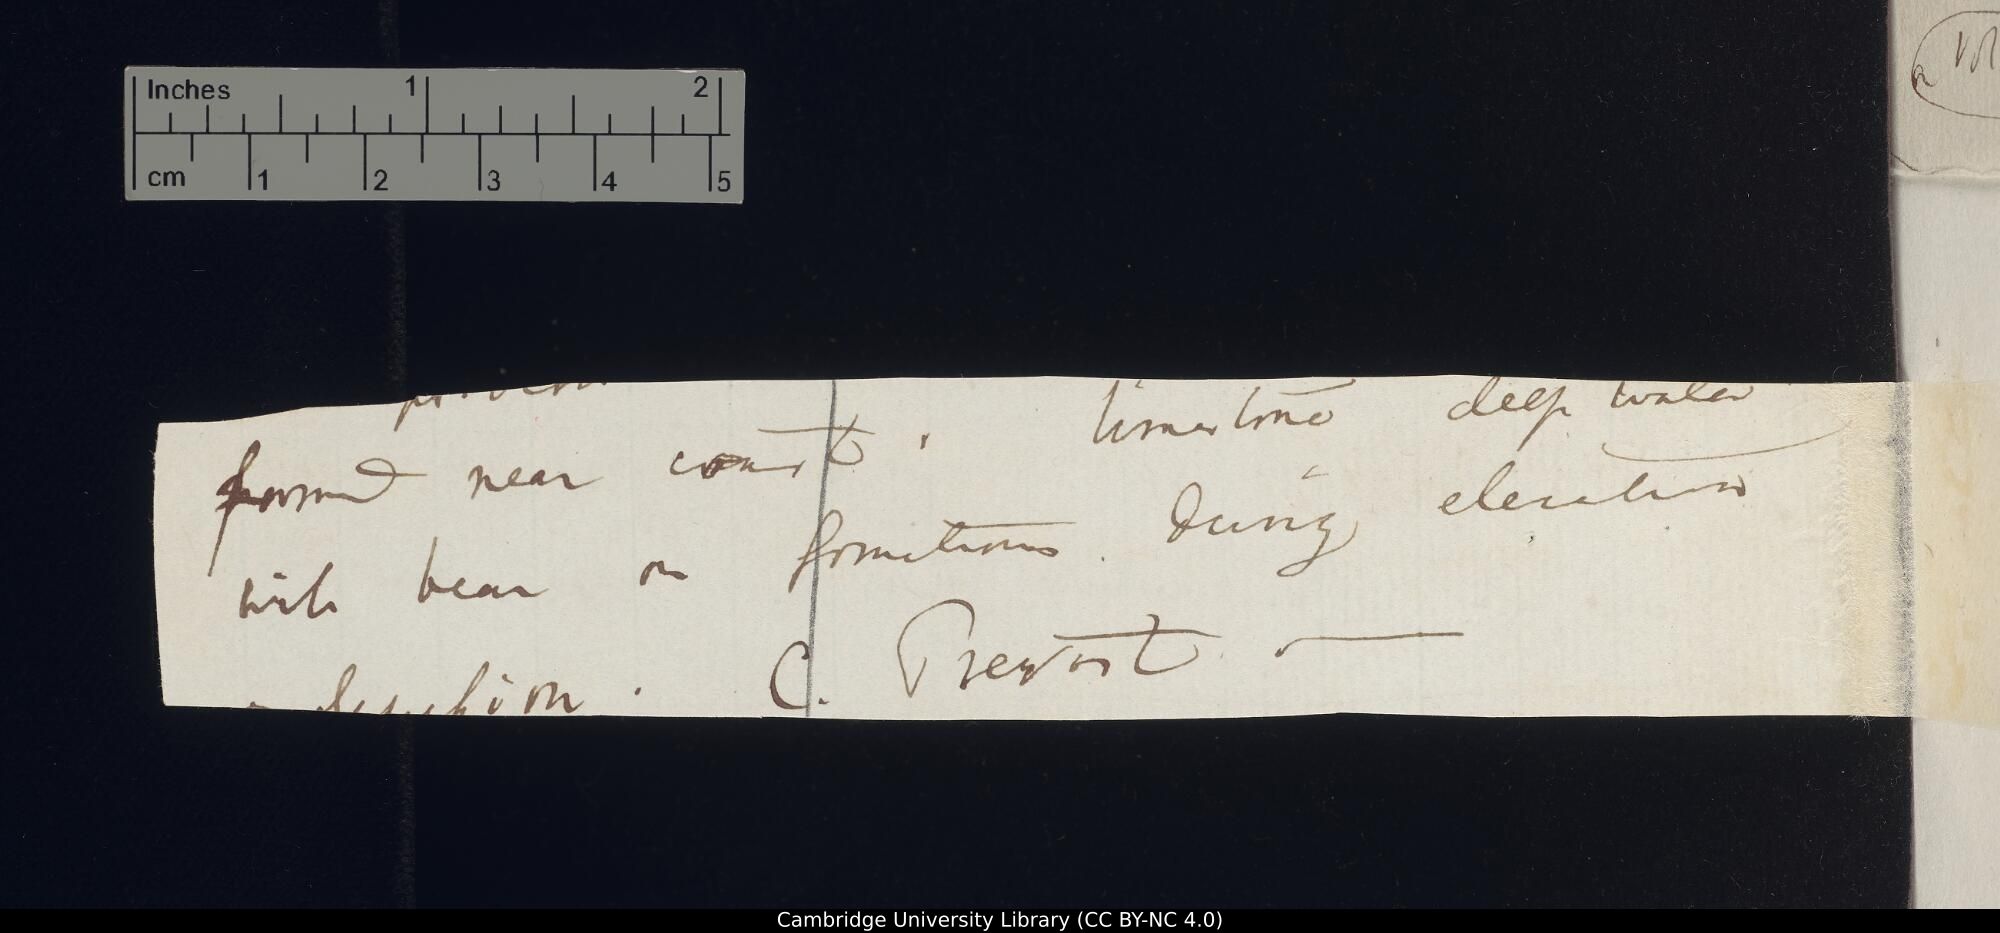 Inches 1 2
cm 1 2 3 4 5
formed near coast, limestone deep water
with bear on formations. During elevation
C. Prevost. —
Cambridge University Library (CC BY-NC 4.0)